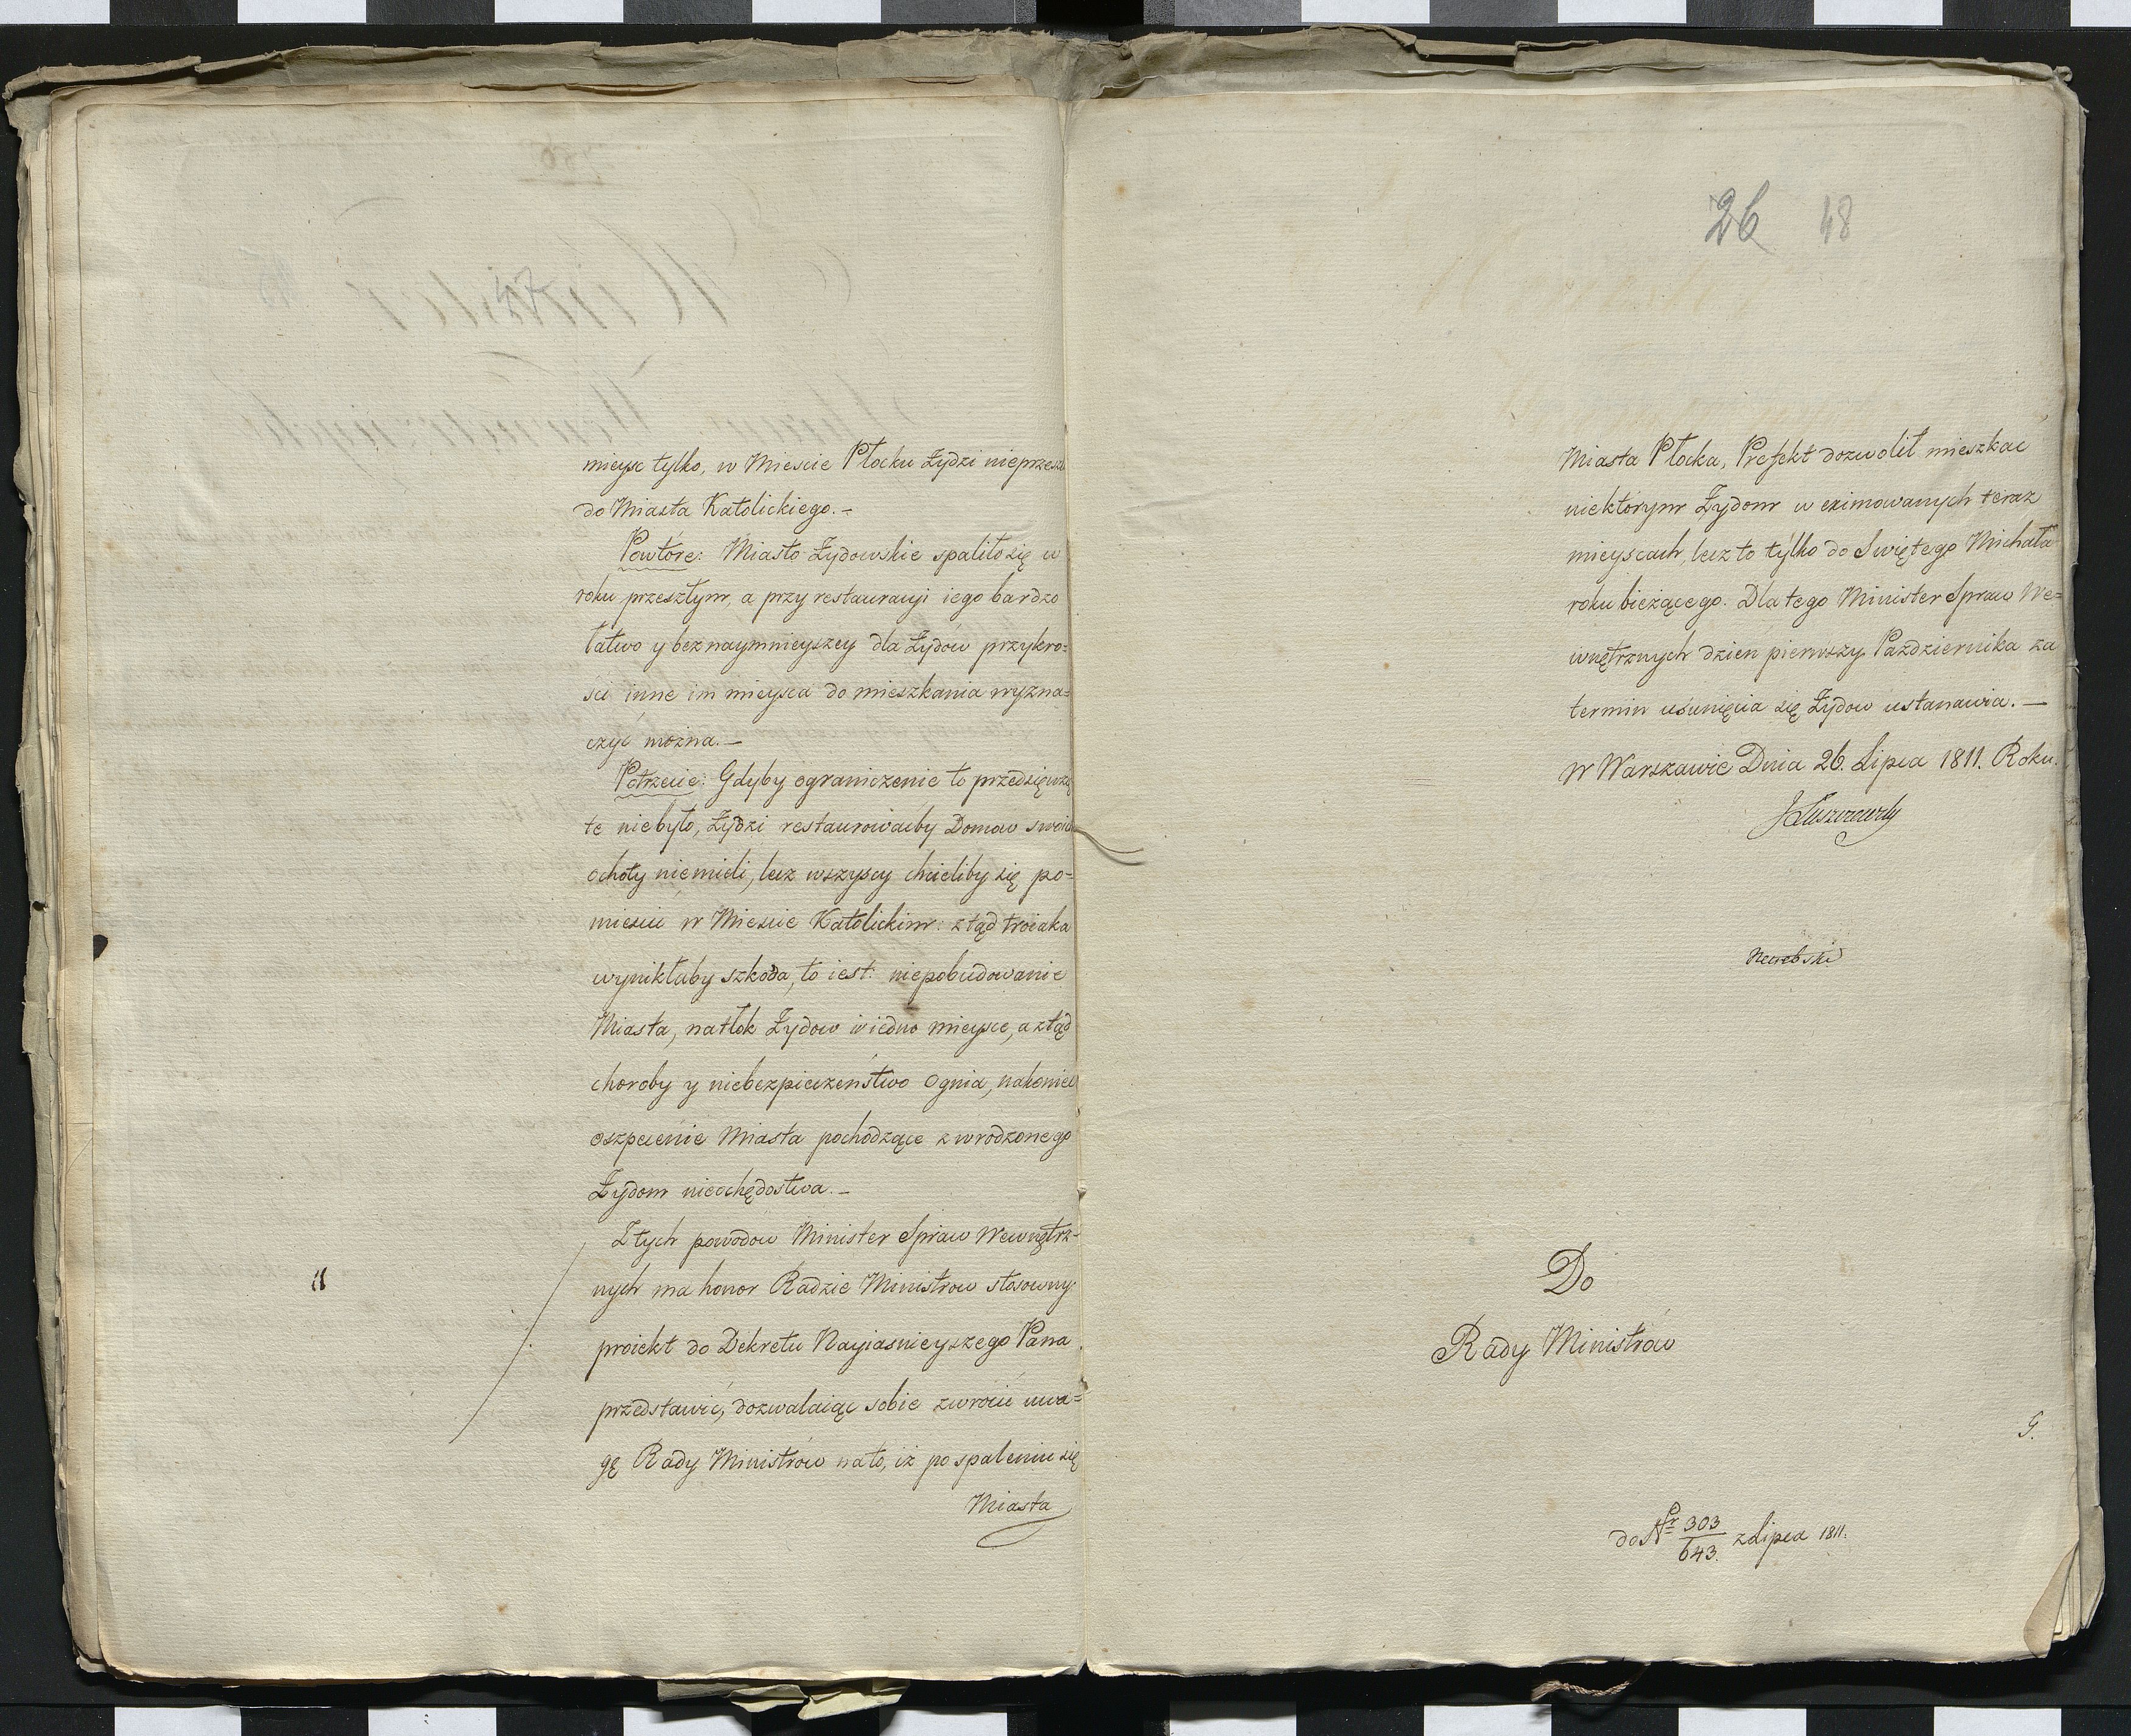 mieysc tylko, w Miescie Płocku Żydzi nieprzeszli
do Miasta Katolickiego. –
Powtóre: Miasto Żydowskie spaliło się w
roku przeszłym, a przy restauracyi iego bardzo
łatwo y bez naymnieyszey dla Żydów przykro=
ści inne im mieysca do mieszkania wyzna=
czyć można. –
Potrzecie: Gdyby ograniczenie to przedsięwzię
te niebyło, Żydzi restaurowaćby Domow swoich
ochoty niemieli, lecz wszyscy chcieliby się po-
mieścić w Mieście Katolickim: ztąd troiaka
wynikłaby szkoda, to iest: niepobudowanie
Miasta, natłok Żydow w iedno mieysce, a ztąd
choroby y niebezpieczeństwo Ognia, nakoniec
oszpecenie Miasta pochodzące z wrodzonego
Żydom nieochędostwa. –
Z tych powodow Minister Spraw Wewnętrz-
nych ma honor Radzie Ministrow stosowny
proiekt do Dekretu Nayiasnieyszego Pana
przedstawić, dozwalaiąc sobie zwrócić uwa=
gę Rady Ministrów na to, iż po spaleniu się
Miasta
26 48
Miasta Płocka, Prefekt dozwolił mieszkać
niektórym Żydom w eximowanych teraz
mieyscach, lecz to tylko do Swiętego Michała
roku bieżącego. Dla tego Minister Spraw We=
wnętrznych dzień pierwszy Pazdziernika za
termin usunięcia się Żydow ustanawia. —
w Warszawie Dnia 26. Lipca 1811. Roku.
JŁuszczewski
Do
Rady Ministrów
G.
do Nr 303/643. z Lipca 1811.